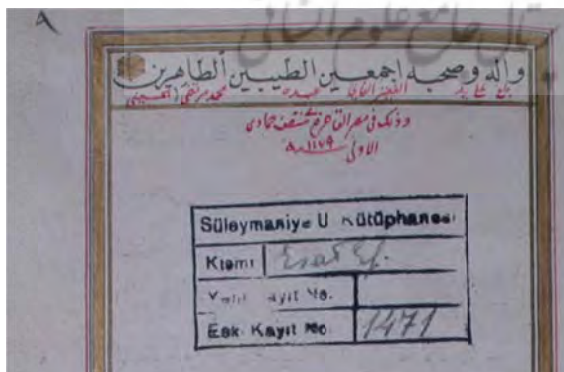 وآله وصحبه اجمعين الطيبين الطاهرين
محمد مرتضى الحسيني
وذلك في مصر القاهرة منتصف جمادى
الاولى ١١٧٩
Süleymaniye U Kütüphanesi
Kısmı Esad Ef.
Yeni Kayıt No.
Esk Kayıt No 1471